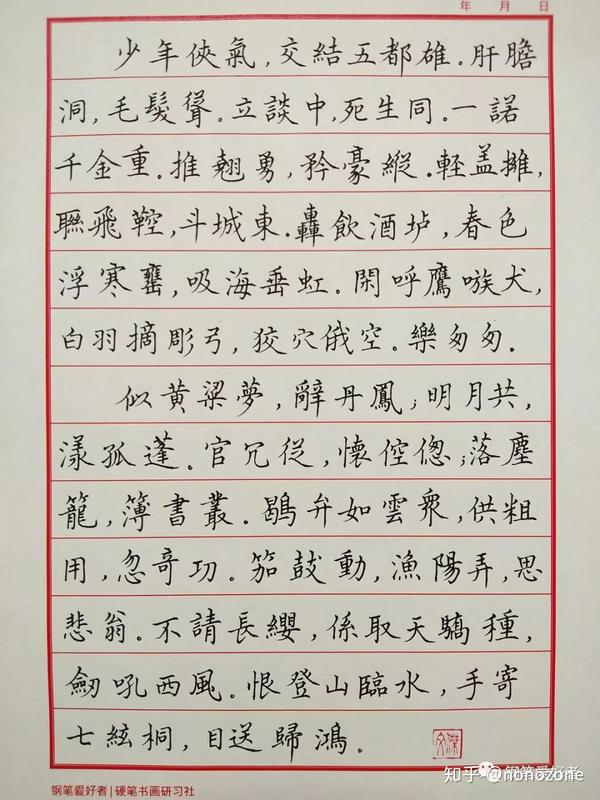 年 月 日
少年俠氣,交結五都雄.肝膽
洞,毛髮聳.立談中,死生同.一諾
千金重.推翹勇,矜豪縱.輕盖擁,
聯飛鞚,斗城東.轟飲酒垆,春色
浮寒甕,吸海垂虹.閑呼鷹嗾犬,
白羽摘彫弓,狡穴俄空.樂匆匆.
似黃粱夢,辭丹鳳;明月共,
漾孤蓬.官冗從,懷倥偬;落塵
籠,簿書叢.鶡弁如雲衆,供粗
用,忽奇功.笳鼓動,漁陽弄,思
悲翁.不請長纓,係取天驕種,
劒吼西風.恨登山臨水,手寄
七絃桐,目送歸鴻.
知乎 @nonozone
钢笔爱好者
钢笔爱好者|硬笔书画研习社